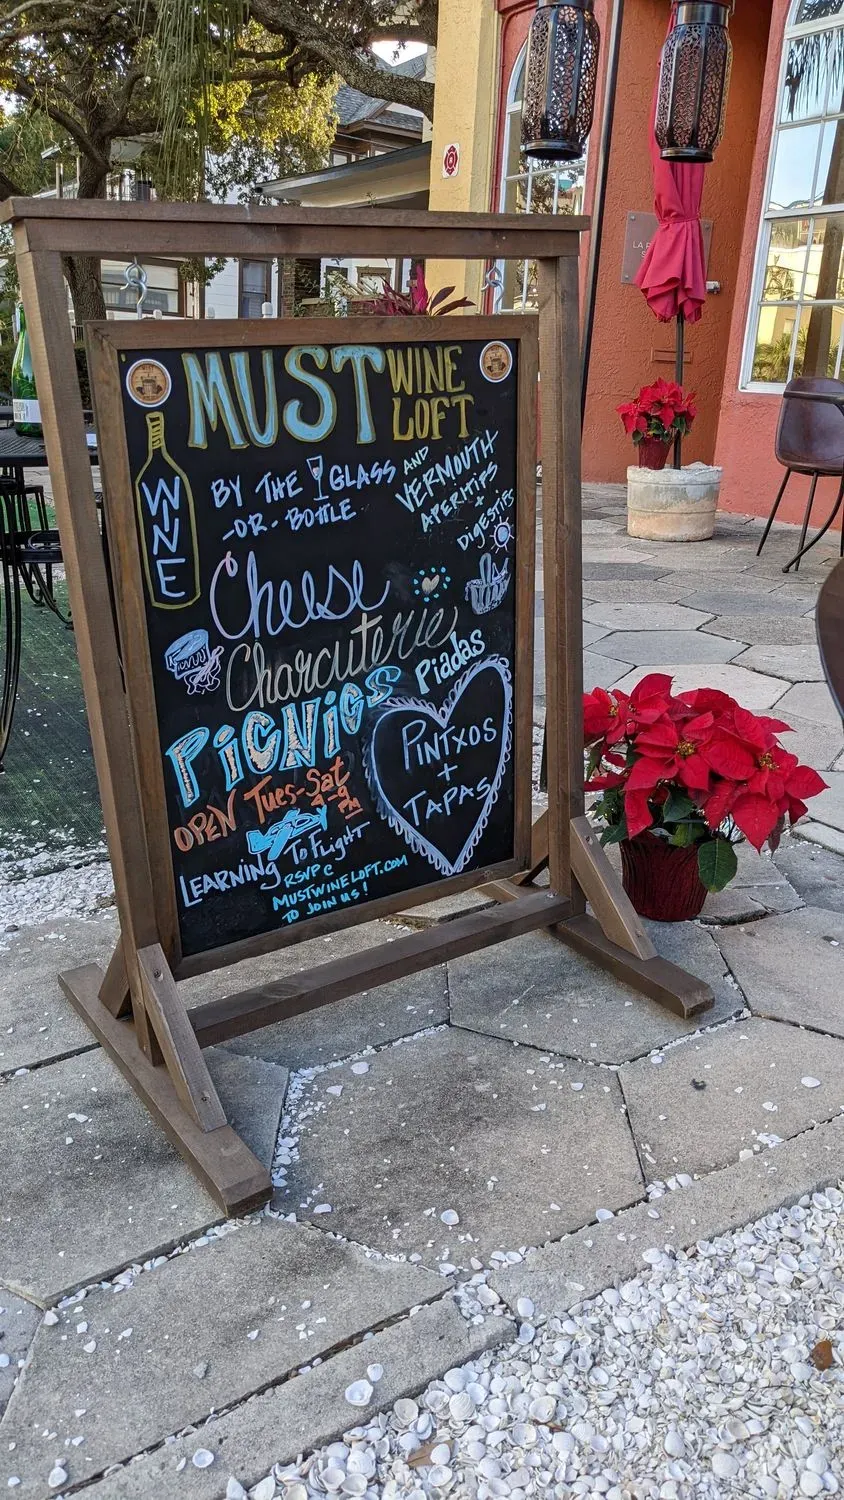 MUST WINE LOFT
WINE
BY THE GLASS
-OR- BOTTLE
AND
VERMOUTH
APERITIPS
+
DIGESTIFS
Cheese
Charcuterie
PiCNiCS
PiADAS
PINTXOS
+
TAPAS
OPEN TUES-SAT
4-9PM
LEARNING TO FLIGHT
RSVP@
MUSTWINELOFT.COM
TO JOIN US!
LA